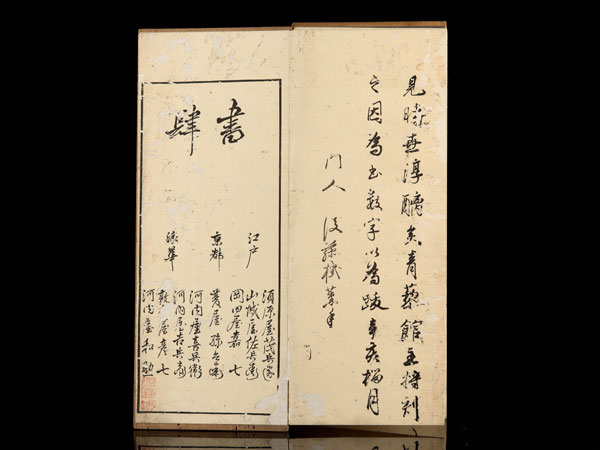 見時無淳醨矣青藜館主將刻
之因為書數字以為跋辛亥橘月
門人
書肆
江戸
須原屋茂兵衛
山城屋佐兵衛
岡田屋嘉七
京都
菱屋孫兵衛
浪華
河内屋喜兵衛
河内屋吉兵衛
敦賀屋彦七
河内屋和助